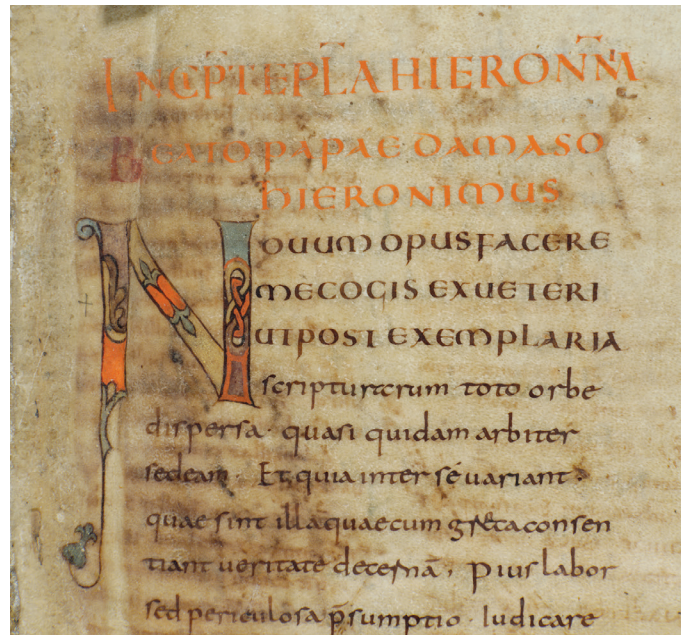 INCIPT EPLA HIERONNM
BEATO PAPAE DAMASO
HIERONIMUS
NOUUM OPUS FACERE
ME COGIS EX UETERI
UT POST EXEMPLARIA
scripturarum toto orbe
dispersa · quasi quidam arbiter
sedeam · Et quia inter sé variant ·
quae sint illa quae cum greca consen
tiant veritate decernā, Pius labor
sed periculosa p̄sumptio · Iudicare